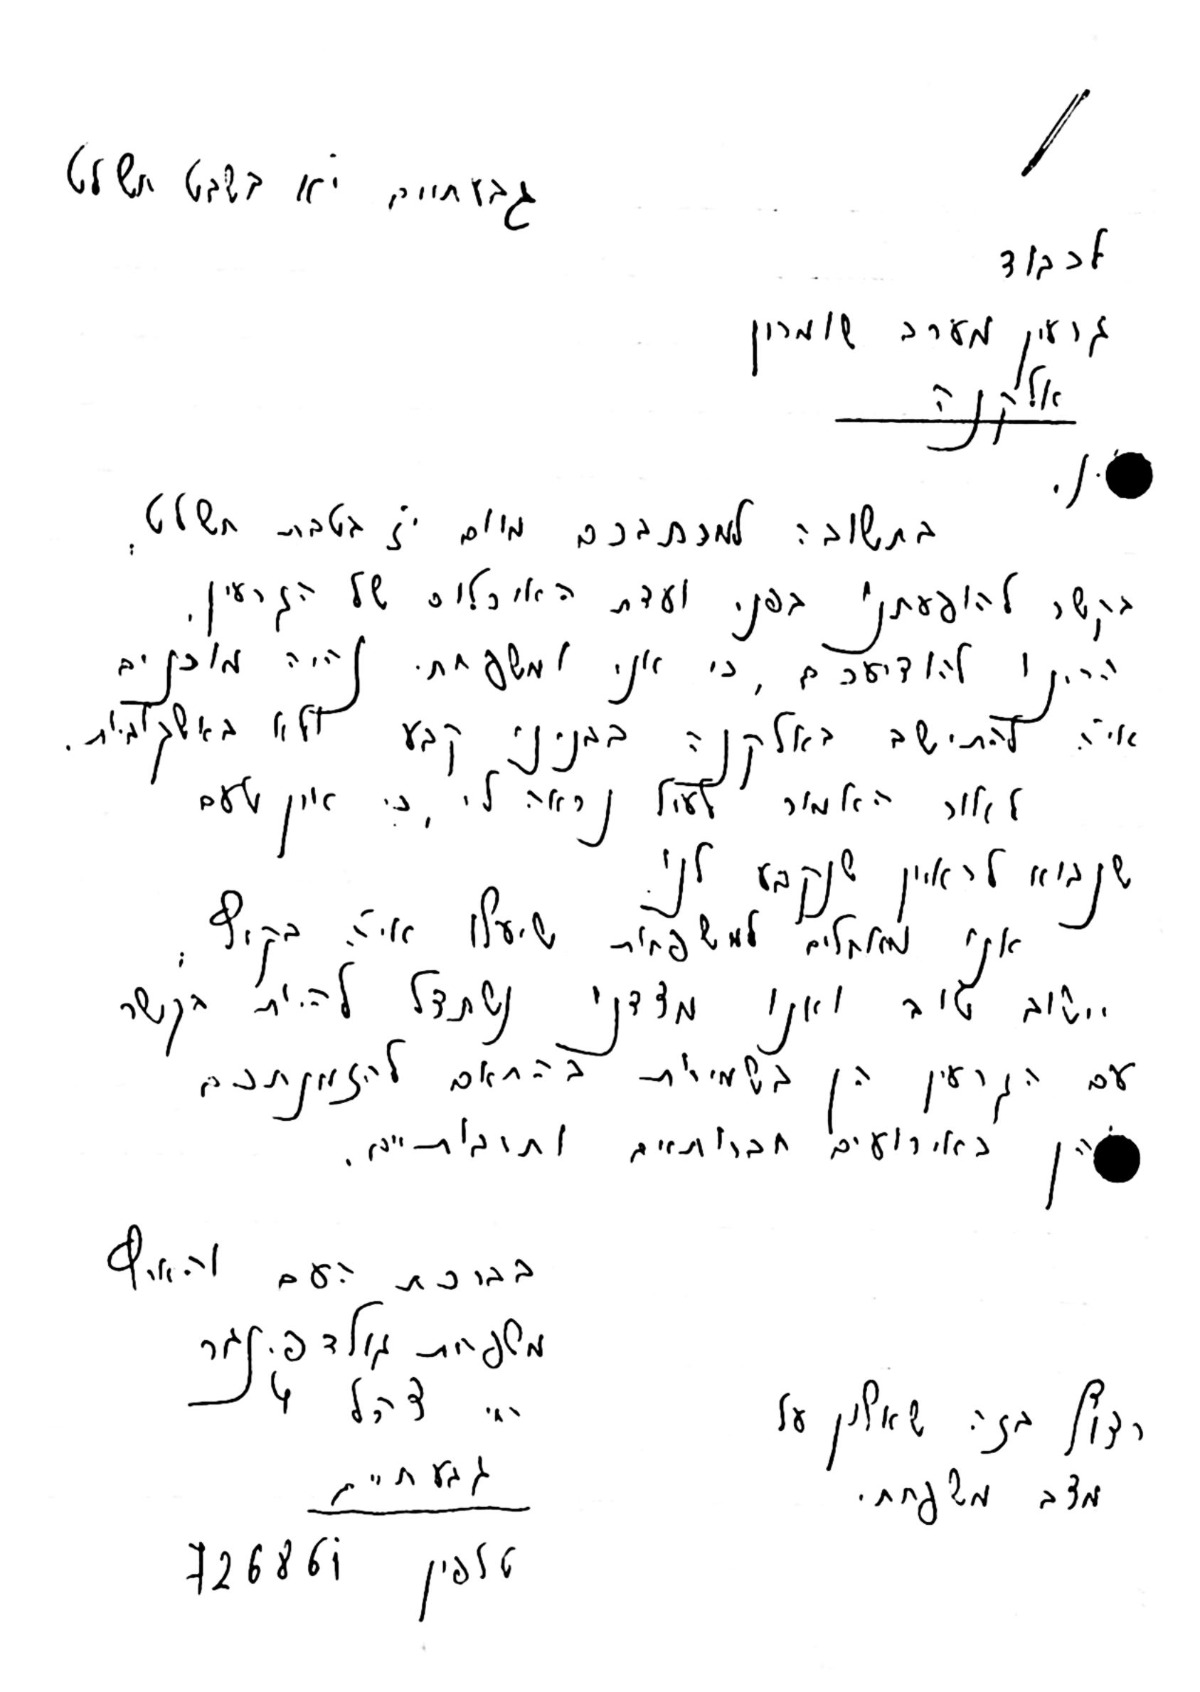 גבעתיים י"א בשבט תשל"ט
לכבוד
גרעין מערב שומרון
אלקנה
.נ.
בתשובה למכתבכם מיום י"ז בטבת תשל"ט,
בקשר להופעתנו בפני ועדת האיכלוס של הגרעין.
הריני להודיעכם, כי אני ומשפחתי נהיה מוכנים
אי"ה להתישב באלקנה בבניני קבע ולא באשקוביות.
לאור האמור לעיל נראה לי, כי אין טעם
שנבוא לראיון שנקבע לנו.
אנו מאחלים למשפחות שיעלו אי"ה בקיץ,
יישוב טוב ואנו מצדנו נשתדל להיות בקשר
עם הגרעין הן בשמירות בהתאם להזמנתכם
והן באירועים חברותיים ותרבותיים.
בברכת העם והארץ
משפחת גולדפינגר
רח' צהל 4
גבעתיים
טלפון 726861
רצוף בזה שאלון על
מצב משפחתי.